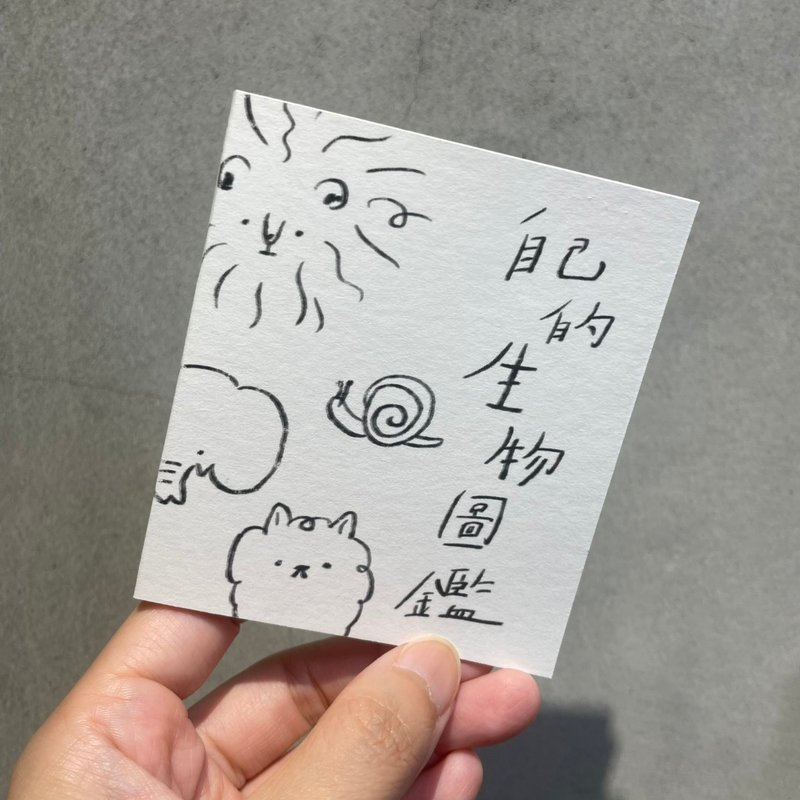 自己的生物圖鑑